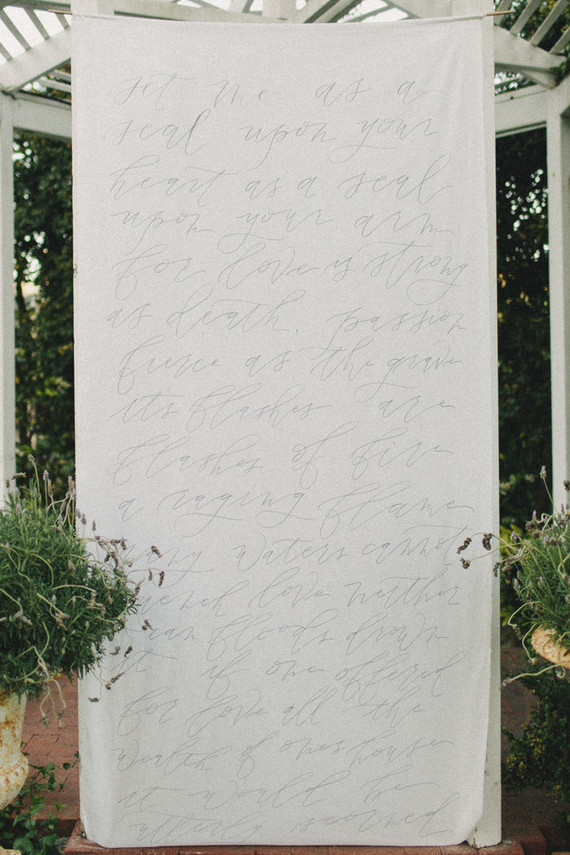 set me as a
seal upon your
heart as a seal
upon your arm
for love is strong
as death. passion
fierce as the grave
it's flashes are
flashes of fire
a raging flame
many waters cannot
quench love neither
can floods drown
it if one offered
for love all the
wealth of ones house
it would be
utterly scorned